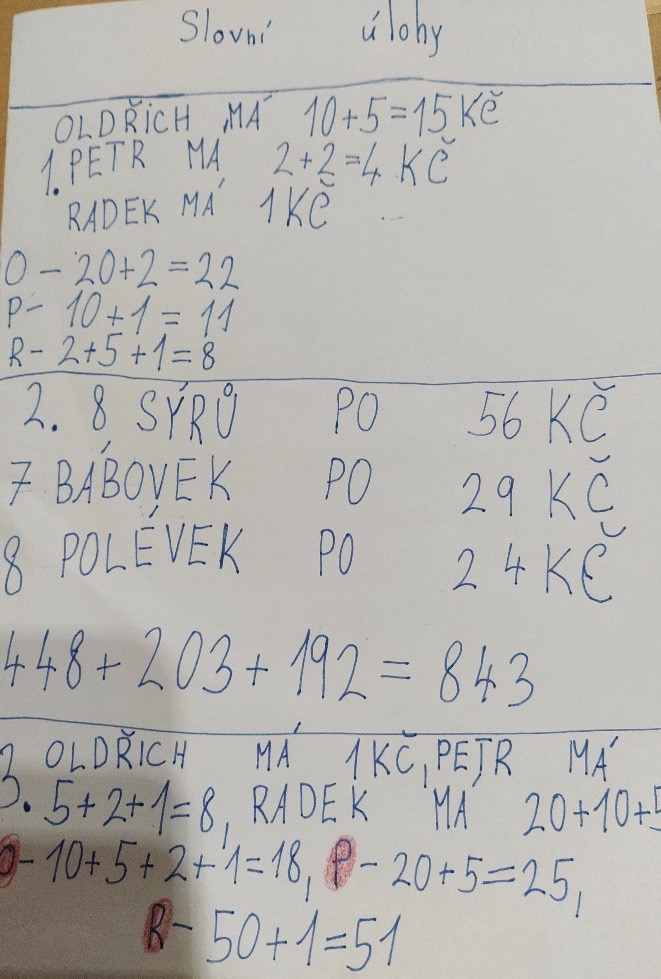 Slovní úlohy
OLDŘICH MÁ 10+5=15 KČ
1. PETR MÁ 2+2=4 KČ
RADEK MÁ 1 KČ
O - 20+2=22
P- 10+1=11
R- 2+5+1=8
2. 8 SÝRŮ PO 56 KČ
7 BÁBOVEK PO 29 KČ
8 POLÉVEK PO 24 KČ
448+203+192=843
3. OLDŘICH MÁ 1 KČ, PETR MÁ
5+2+1=8, RADEK MÁ 20+10+5
O- 10+5+2+1=18, P- 20+5=25,
R- 50+1=51